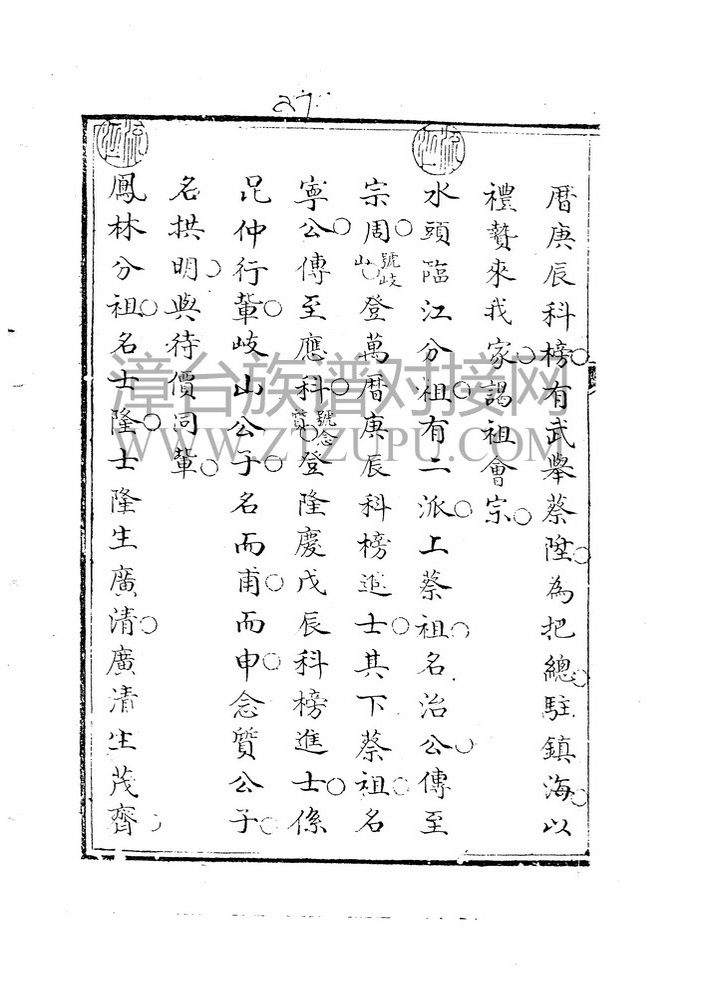 27
曆庚辰科榜有武舉蔡陞為把總駐鎮海以
禮贄來我家謁祖會宗
水頭臨江分祖有二派上蔡祖名治公傳至
宗周號岐山登萬曆庚辰科榜進士其下蔡祖名
寧公傳至應科號念質登隆慶戊辰科榜進士係
昆仲行輩岐山公子名而甫而申念質公子
名拱明與待價同輩
鳳林分祖名士隆士隆生廣清廣清生茂齊
漳台族谱对接网
WWW.ZTZUPU.COM